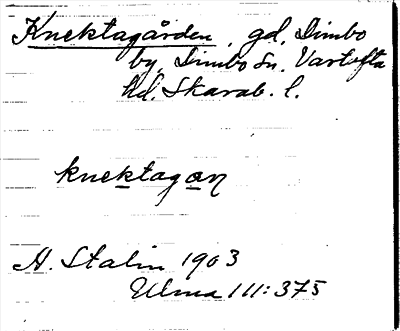 Knektagården, gd, Dimbo
by, Dimbo sn. Vartofta
hd. Skarab. l.
knektagan
H. Stalin 1903
Ulma 111:375